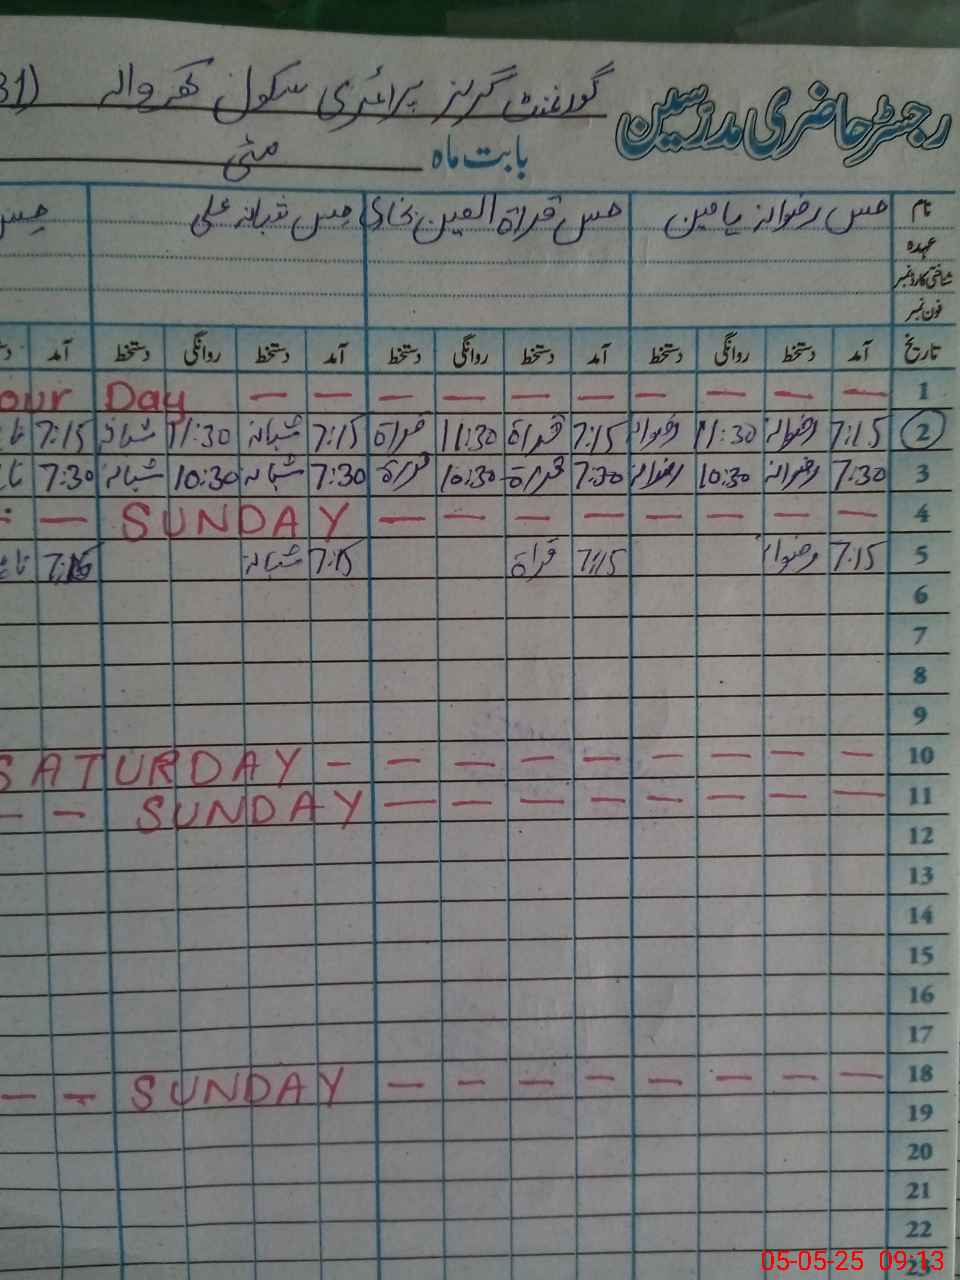 رجسٹر حاضری مدرسین گورنمنٹ گرلز پرائمری سکول کھر والہ (31
بابت ماہ مئی
نام مس رضوانہ یامین مس قراۃ العین بخاری مس شبانہ علی مس
عہدہ
شناختی کارڈ نمبر
فون نمبر
تاریخ آمد دستخط روانگی دستخط آمد دستخط روانگی دستخط آمد دستخط روانگی دستخط آمد
1 — — — — — — — — — — our Day
2 7:15 رضوانہ 11:30 رضوانہ 7:15 قراۃ 11:30 قراۃ 7:15 شبانہ 11:30 شبانہ 7:15
3 7:30 رضوانہ 10:30 رضوانہ 7:30 قراۃ 10:30 قراۃ 7:30 شبانہ 10:30 شبانہ 7:30
4 — — — — — — — — SUNDAY —
5 7:15 رضوانہ 7:15 قراۃ 7:15 شبانہ
6
7
8
9
10 — — — — — — — — — SATURDAY
11 — — — — — — — — SUNDAY — —
12
13
14
15
16
17
18 — — — — — — — — SUNDAY — —
19
20
21
22
23
05-05-25 09:13